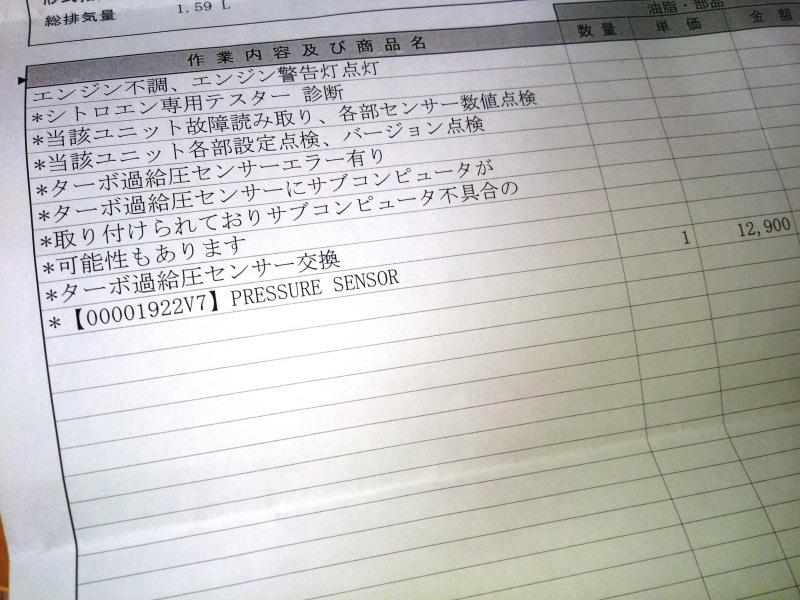 総排気量 1.59 L
油脂・部品
作業内容及び商品名 数量 単価 金額
エンジン不調、エンジン警告灯点灯
*シトロエン専用テスター 診断
*当該ユニット故障読み取り、各部センサー数値点検
*当該ユニット各部設定点検、バージョン点検
*ターボ過給圧センサーエラー有り
*ターボ過給圧センサーにサブコンピュータが
*取り付けられておりサブコンピュータ不具合の
*可能性もあります
*ターボ過給圧センサー交換
*【00001922V7】PRESSURE SENSOR 1 12,900